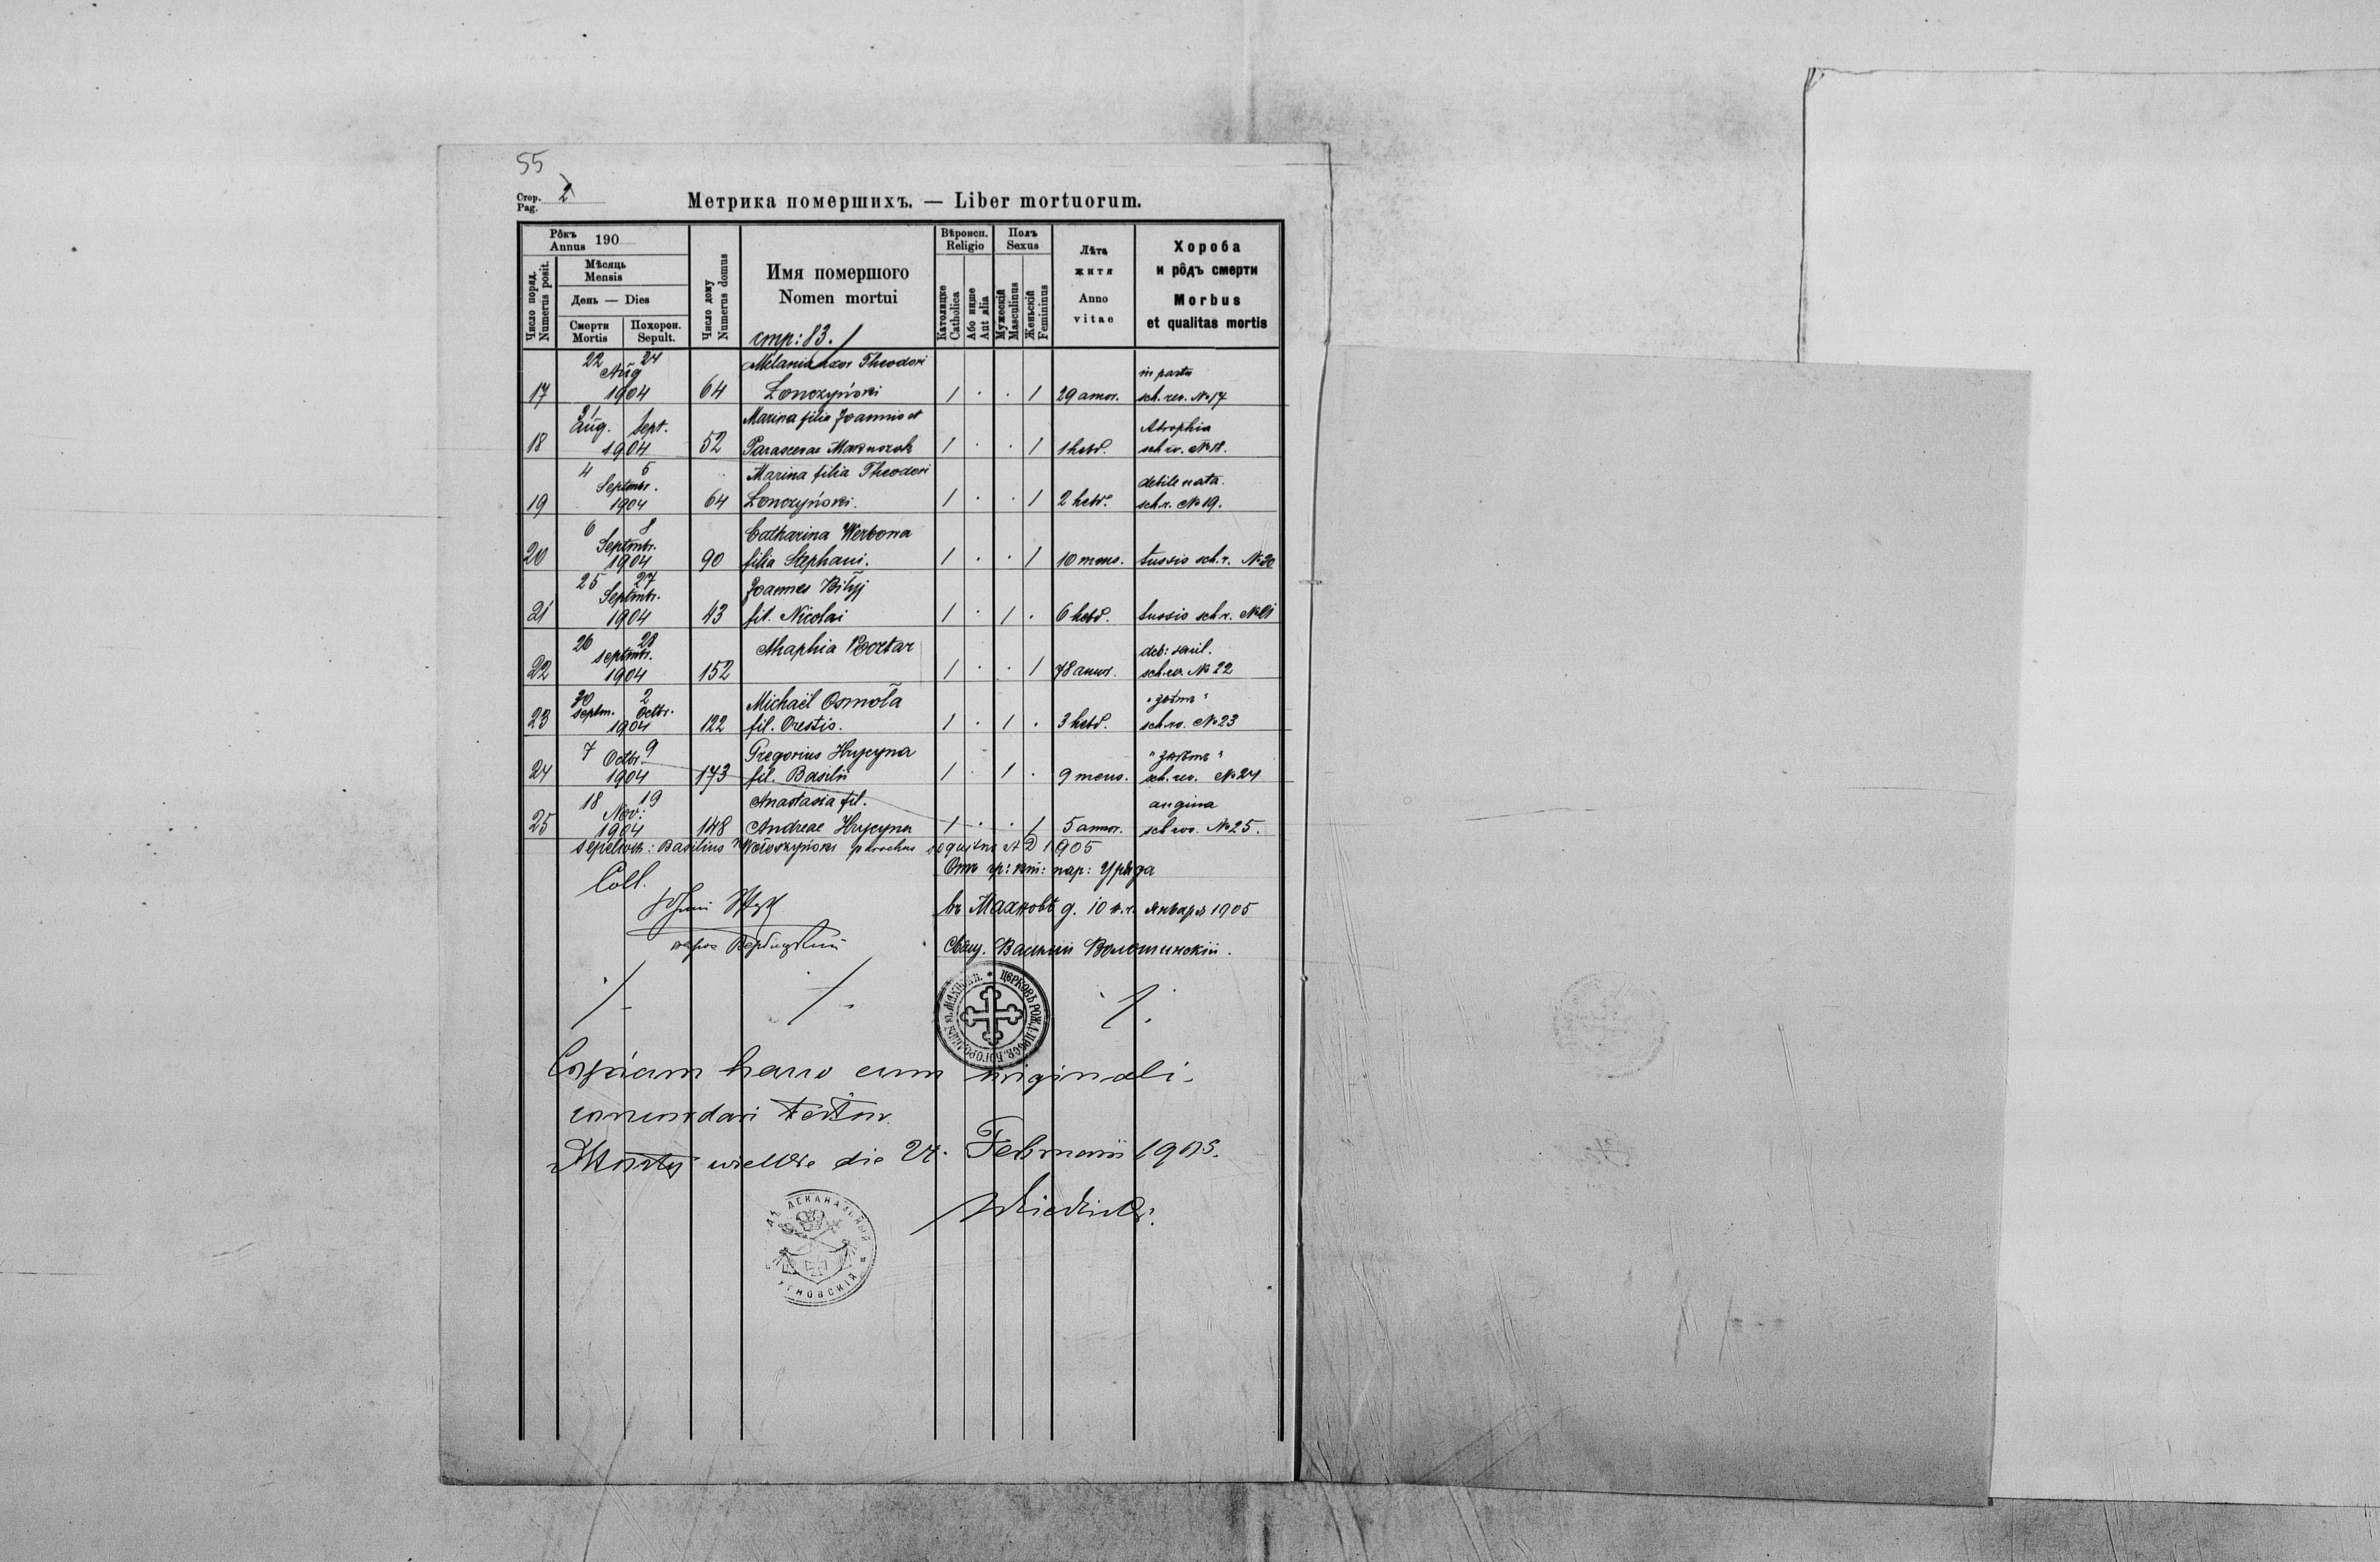 55
Стор. Pag. 2
Метрика помершихъ. — Liber mortuorum.
Рôкъ Annus 190
Число поряд. Numerus posit.
Мѣсяць Mensis
День — Dies
Смерти Mortis
Похорон. Sepult.
Число дому Numerus domus
Имя помершого Nomen mortui
стр: 83.
Вѣроисп. Religio
Католицке Catholica
Або инше Aut alia
Полъ Sexus
Мужескій Masculinus
Женьскій Femininus
Лѣта житя Anno vitae
Хороба и рôдъ смерти Morbus et qualitas mortis
22 24 Melania uxor Theodori
Aug in partu
17 1904 64 Łonczyński 1 . . 1 29 annor. sch. rev. № 17
31 Marina filia Joannis et
Aug. Sept. Atrophia
18 1904 52 Parascevae 1 . . 1 1 hebd. sch rv. № 18.
4 6 Marina filia Theodori
Septmbr. debile nata.
19 1904 64 Łonczyński. 1 . . 1 2 hebd. sch.r. № 19.
6 8 Catharina Werbowa
Septmbr.
20 1904 90 filia Stephani. 1 . . 1 10 mens. tussis sch.r. № 20
25 27 Joannes Biłyj
Septmbr.
21 1904 43 fil. Nicolai 1 . 1 . 6 hebd. tussis sch r. № 21
26 28 Maphia
septmbr. deb: senil.
22 1904 152 1 . . 1 78 annor. sch.rv. № 22
30 2 Michaël Osmoła
septm. Octbr.
23 1904 122 fil. Orestis. 1 . 1 . 3 hebd. sch.rv. № 23
7 9 Gregorius Hrycyna
Octbr.
24 1904 173 fil. Basilii 1 . 1 . 9 mens. sch. rev. № 24
18 19 Anastasia fil.
Nov: angina
25 1904 148 Andreae Hrycyna 1 . . 1 5 annor. sch rv. № 25.
sepelivit: Basilius Wołoszyński parochus sequitur A D 1905
Отъ гр: кат: пар: Уряда
Coll.
въ Махновѣ д. 10 н.с. Януарь 1905
Свящ. Василий Волошинскій.
ЦЕРКОВЬ РОЖД. ПРЕСВ. БОГОРОДИЦЫ въ МАХНОВѢ.
Copiam hanc cum originali
concordari testor.
die 24. Februarii 1905.
ДЕКАНАЛЬНЫЙ